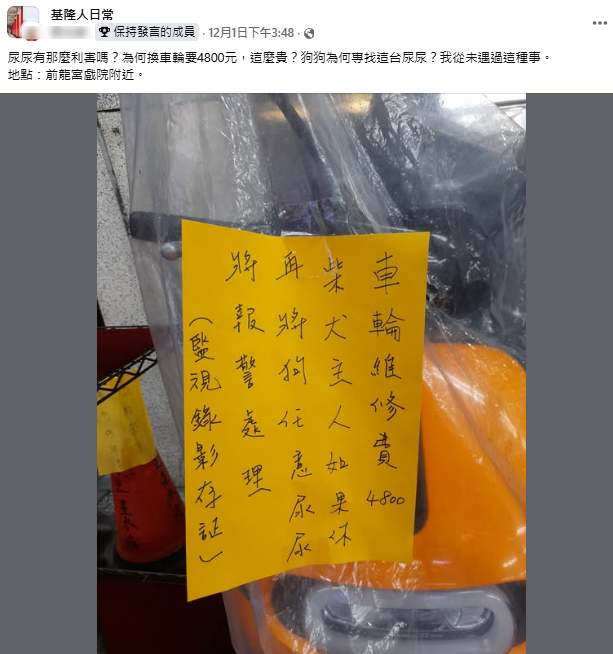 基隆人日常
保持發言的成員 · 12月1日下午3:48 ·
尿尿有那麼利害嗎？為何換車輪要4800元，這麼貴？狗狗為何専找這台尿尿？我從未遇過這種事。
地點：前龍宮戲院附近。
車輪維修費 4800
柴犬主人如果你
再將狗任意尿尿
將報警處理
（監視錄影存証）